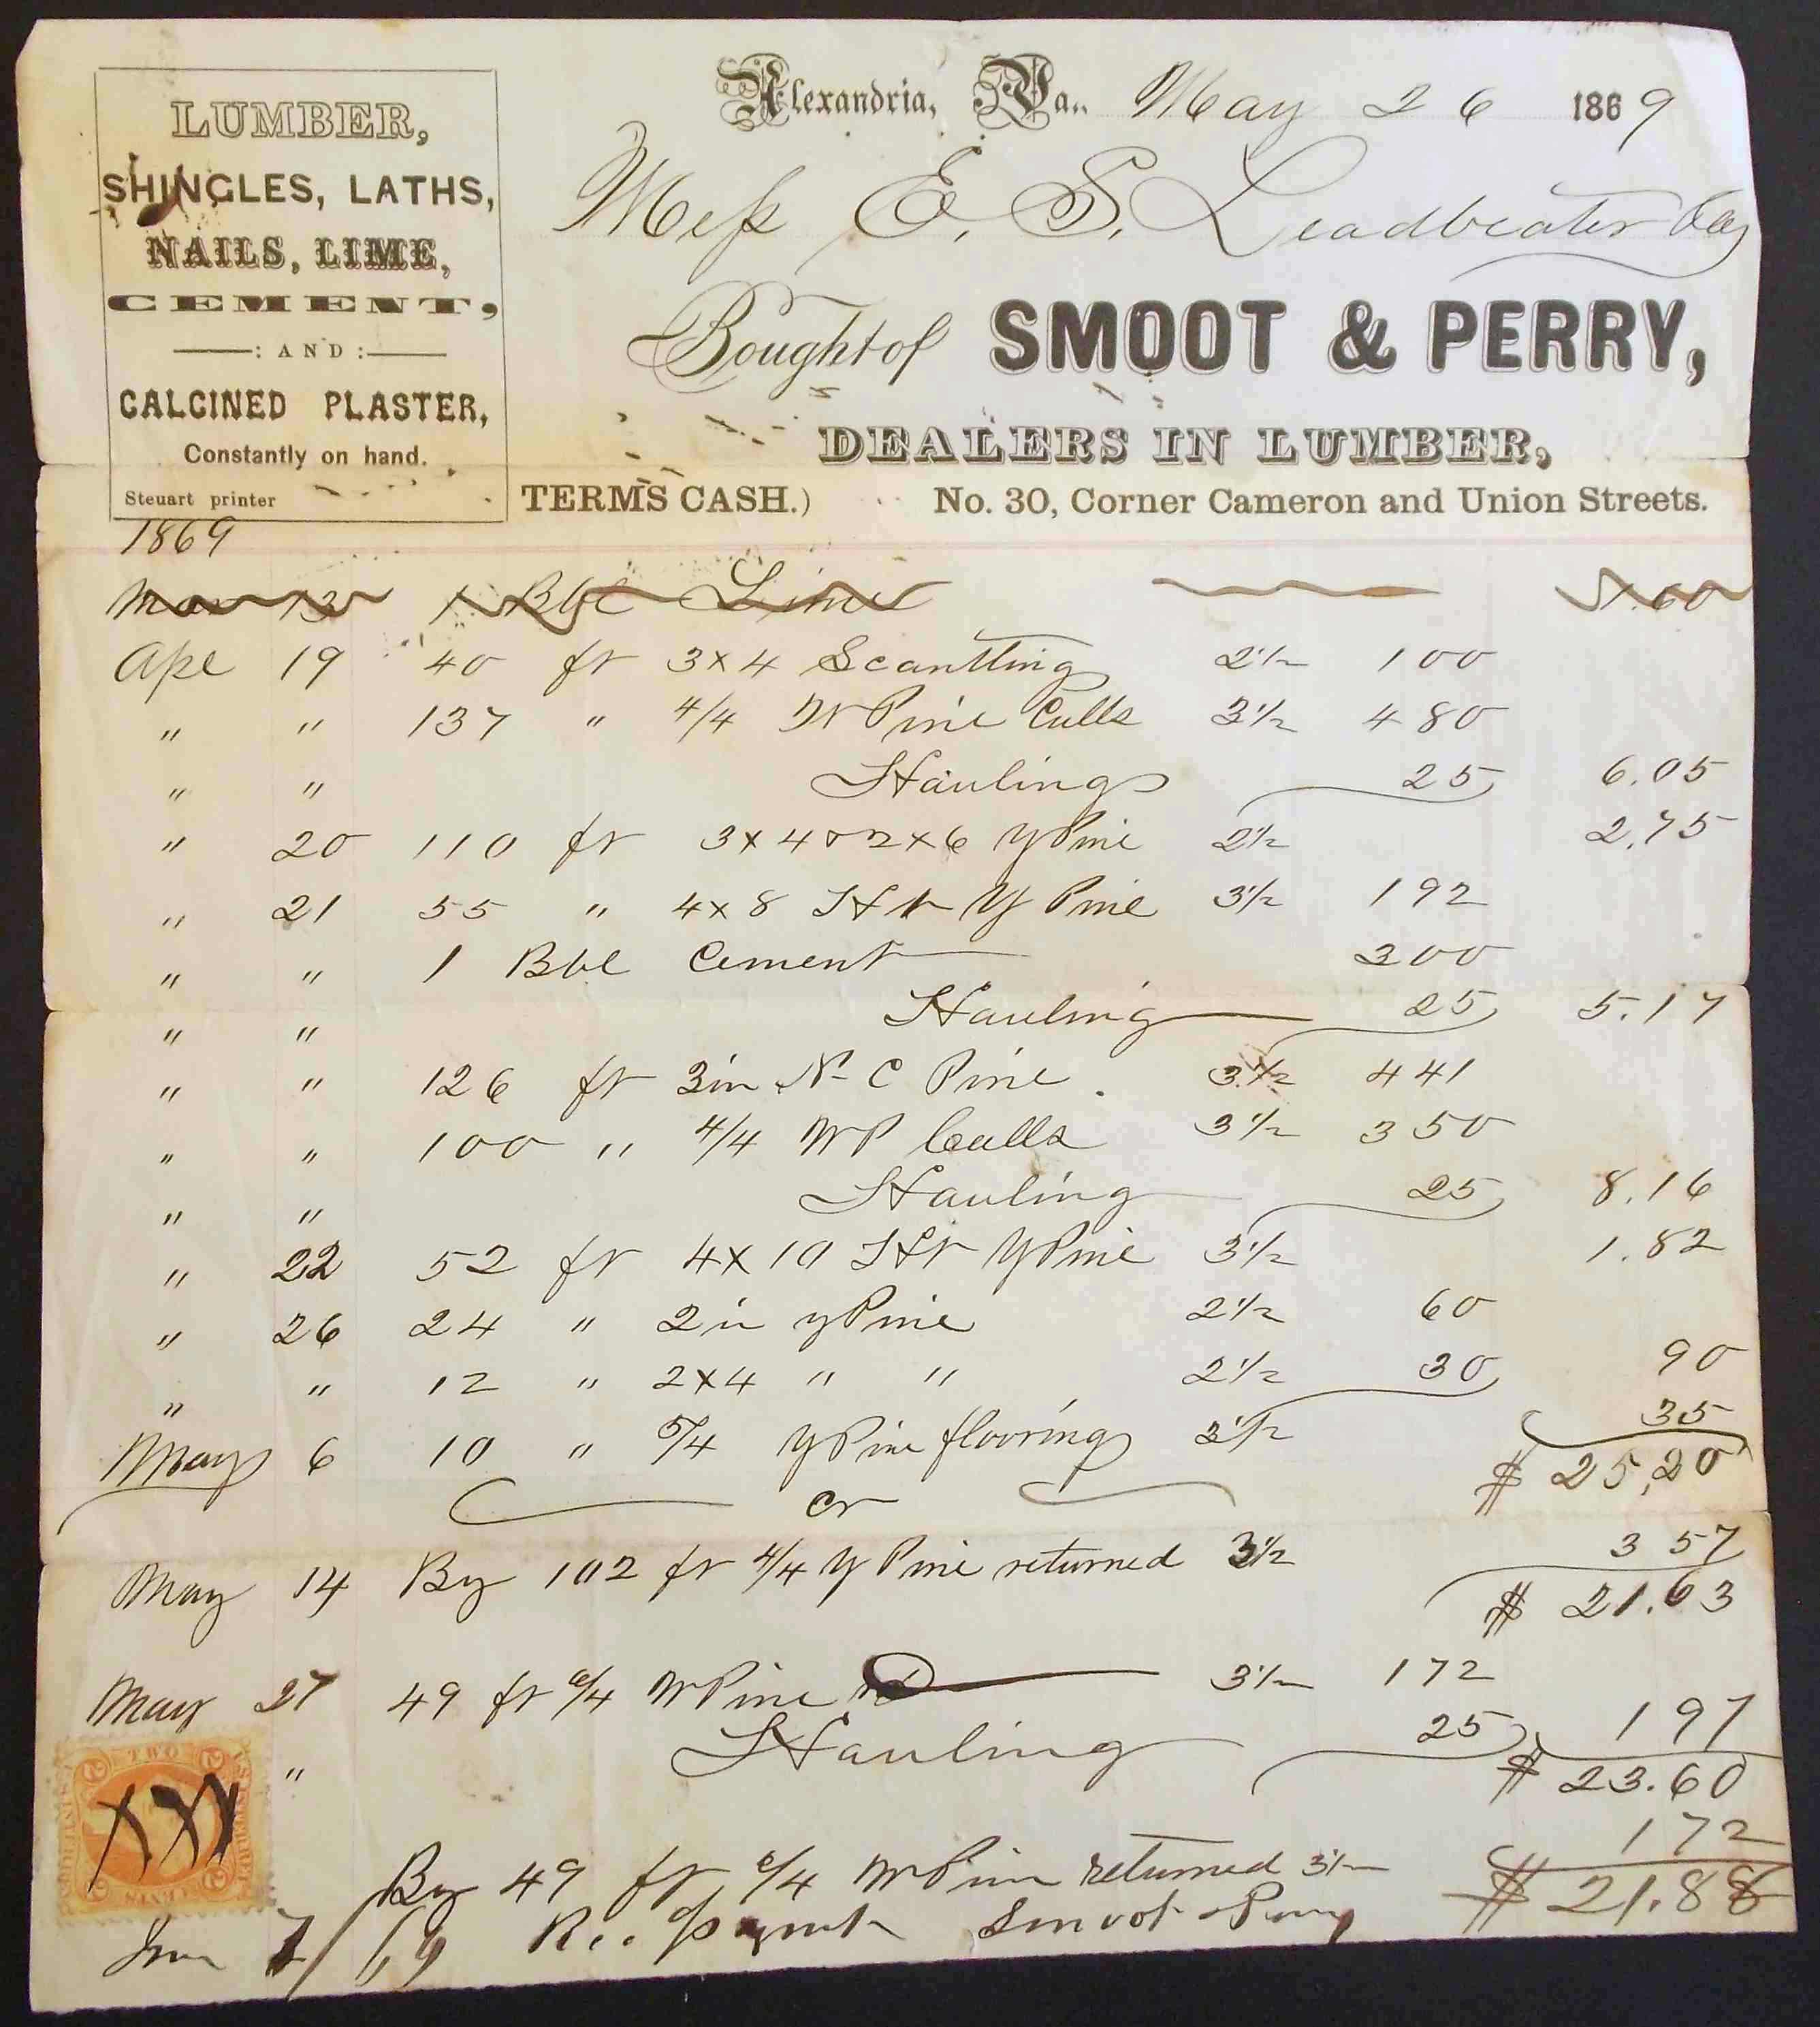 LUMBER,
SHINGLES, LATHS,
NAILS, LIME,
CEMENT,
: AND :
CALCINED PLASTER,
Constantly on hand.
Steuart printer
Alexandria, Va., May 26 1869
Mess E. S. Leadbeater
Bought of SMOOT & PERRY,
DEALERS IN LUMBER,
TERMS CASH.) No. 30, Corner Cameron and Union Streets.
1869
Mar 13 1 Bbl Lime 1.60
Apl 19 40 ft 3x4 Scantling 2½ 100
" " 137 " 4/4 W Pine Culls 3½ 480
" " Hauling 25 6.05
" 20 110 ft 3x4 & 2x6 Y Pine 2½ 2.75
" 21 55 " 4x8 Y Pine 3½ 192
" " 1 Bbl Cement 300
" " Hauling 25 5.17
" " 126 ft 3in N C Pine 3½ 441
" " 100 " 4/4 W P Culls 3½ 350
" " Hauling 25 8.16
" 22 52 ft 4x10 Y Pine 3½ 1.82
" 26 24 " 2in y Pine 2½ 60
" " 12 " 2x4 " " 2½ 30 90
May 6 10 " 5/4 Y Pine flooring 3½ 35
$ 25,20
Cr
May 14 By 102 ft 4/4 Y Pine returned 3½ 3 57
$ 21.63
May 27 49 ft 6/4 W Pine 3½ 172
" Hauling 25 197
$ 23.60
By 49 ft 6/4 W Pine returned 3½ 172
$ 21.88
June /69 Rec payment Smoot & Perry
TWO
CENTS
XXX